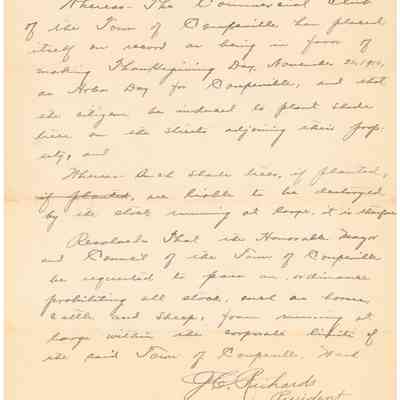 Whereas - The Commercial Club
of the Town of Coupeville has placed
itself on record as being in favor of
making Thanksgiving Day, November
as Arbor Day for Coupeville, and that
the citizens be induced to plant shade
trees on the streets adjoining their prop-
erty, and
Whereas - Such shade trees, if planted,
if planted, are liable to be destroyed
by the stock running at large, it is therefore
Resolved - That the Honorable Mayor
and Council of the Town of Coupeville
be requested to pass an ordinance
prohibiting all stock, such as horses,
cattle and sheep, from running at
large within the corporate limits of
the said Town of Coupeville, Wash
J.C. Richards
President